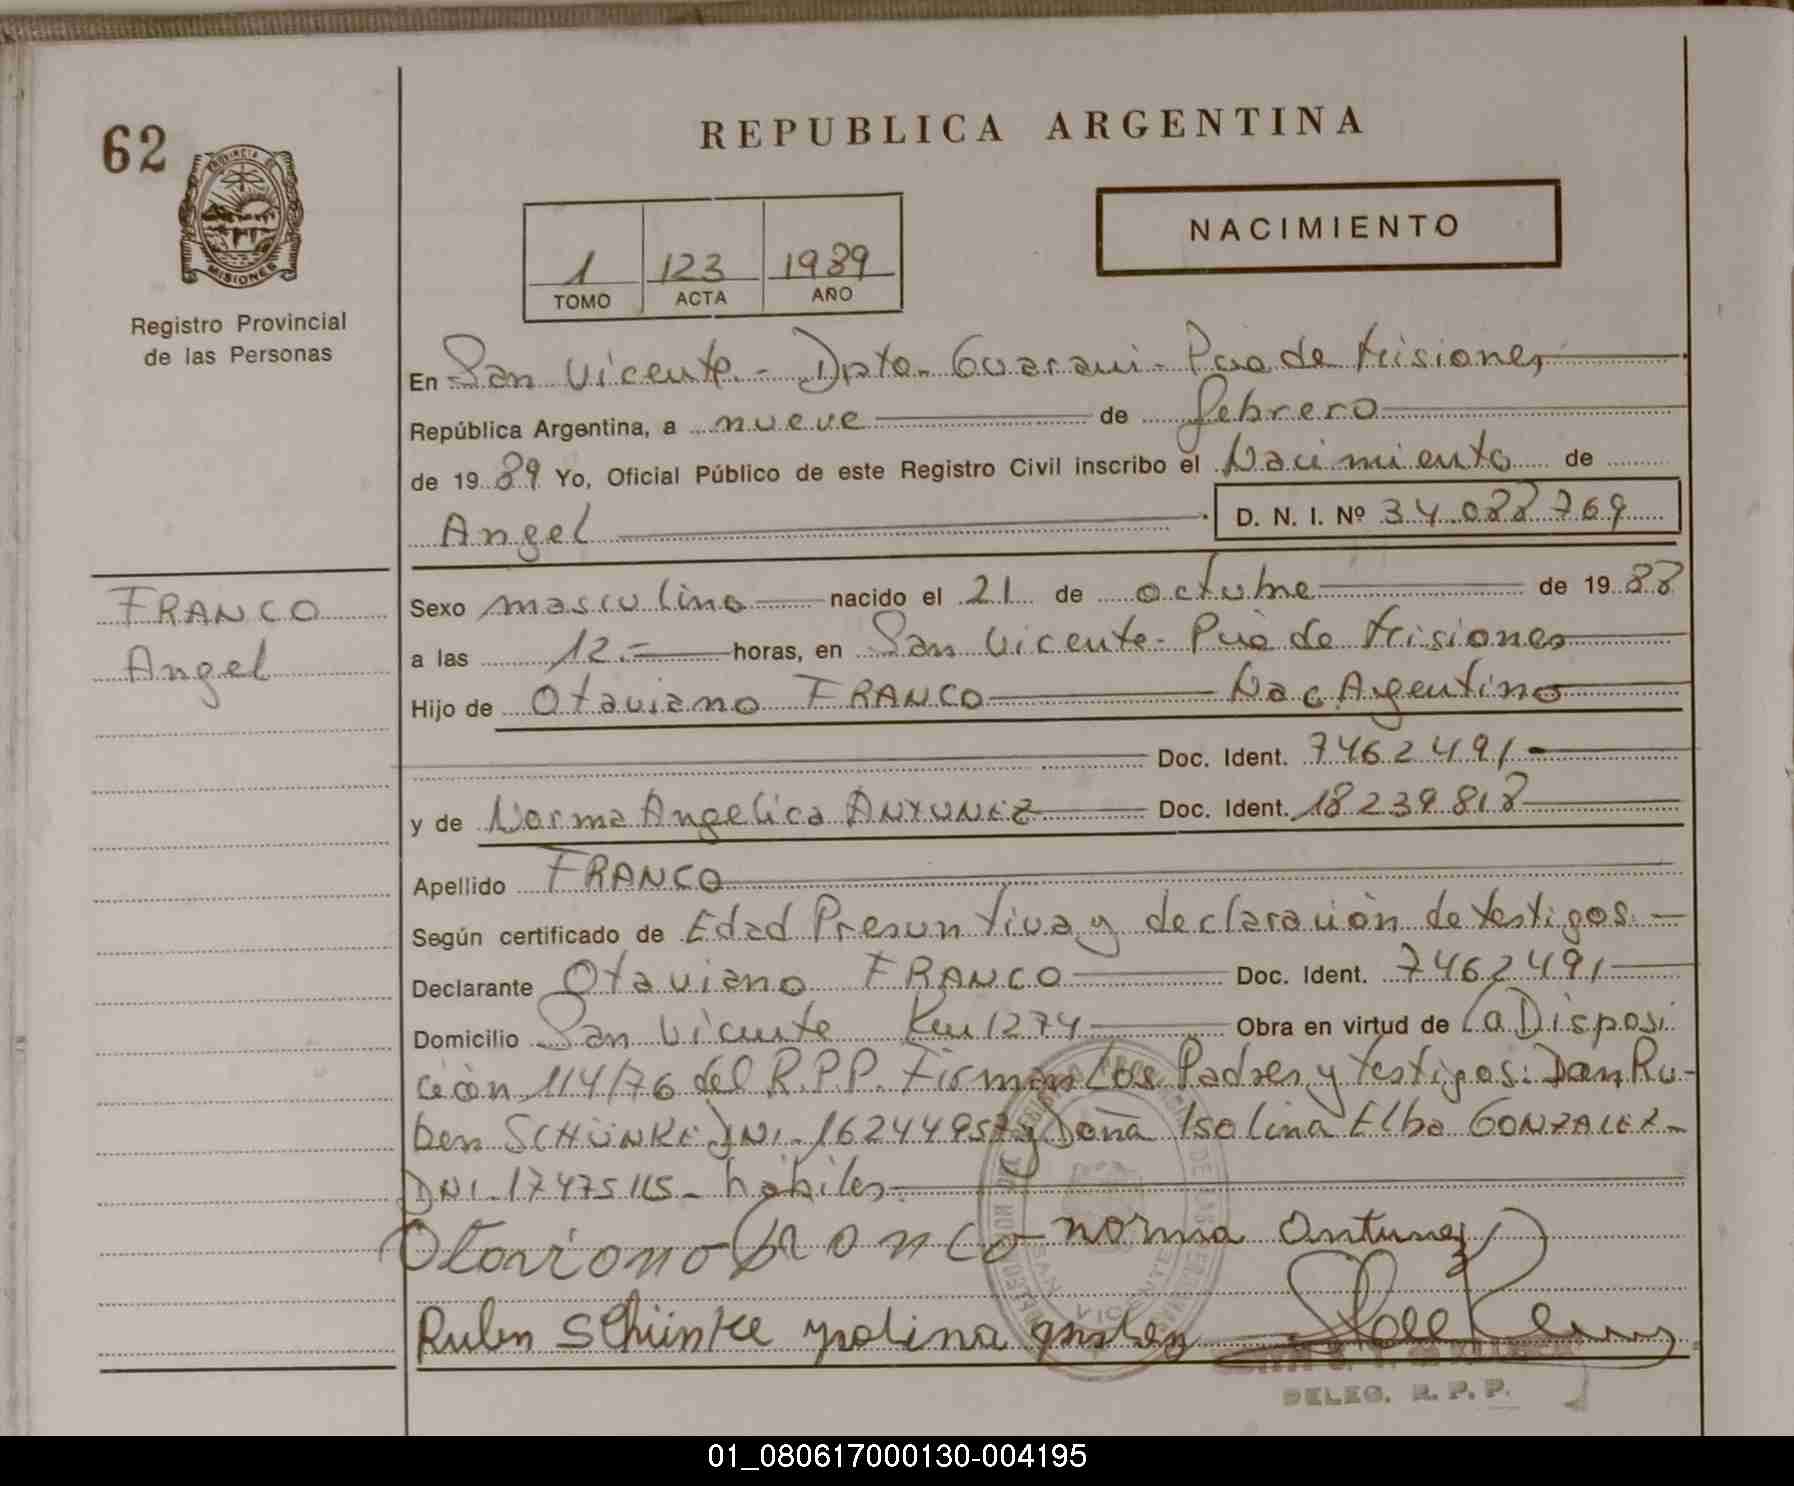 62
PROVINCIA DE
MISIONES
Registro Provincial
de las Personas
REPUBLICA ARGENTINA
1 123 1989
TOMO ACTA AÑO
NACIMIENTO
En San Vicente - Dpto. Guarani - Pcia de Misiones
República Argentina, a nueve de febrero
de 1989 Yo, Oficial Público de este Registro Civil inscribo el Nacimiento de
Angel D. N. I. Nº 34.088769
FRANCO
Angel
Sexo masculino nacido el 21 de octubre de 1988
a las 12.= horas, en San Vicente - Pcia de Misiones
Hijo de Otaviano FRANCO Nac. Argentino
Doc. Ident. 7462491
y de Norma Angelica ANTUNEZ Doc. Ident. 18239818
Apellido FRANCO
Según certificado de Edad Presuntiva y declaración de testigos.
Declarante Otaviano FRANCO Doc. Ident. 7462491
Domicilio San Vicente Km 1274 Obra en virtud de La Disposi
ción 114/76 del R.P.P. Firman Los Padres y testigos: Dan Ru-
ben SCHÜNKE DNI. 16244957 y Doña Isolina Elba GONZALEZ-
DNI. 17475115 - hábiles.
Otaviono Franco norma Antunez
Ruben Schünke ysolina
SAN VICENTE
DELEG. R. P. P.
01_080617000130-004195